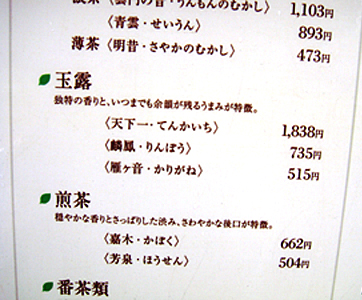 〈雲門の昔・うんもんのむかし〉 1,103円
〈青雲・せいうん〉 893円
薄茶〈明昔・さやかのむかし〉 473円
玉露
独特の香りと、いつまでも余韻が残るうまみが特徴。
〈天下一・てんかいち〉 1,838円
〈麟鳳・りんぽう〉 735円
〈雁ヶ音・かりがね〉 515円
煎茶
穏やかな香りとさっぱりした渋み、さわやかな後口が特徴。
〈嘉木・かぼく〉 662円
〈芳泉・ほうせん〉 504円
番茶類